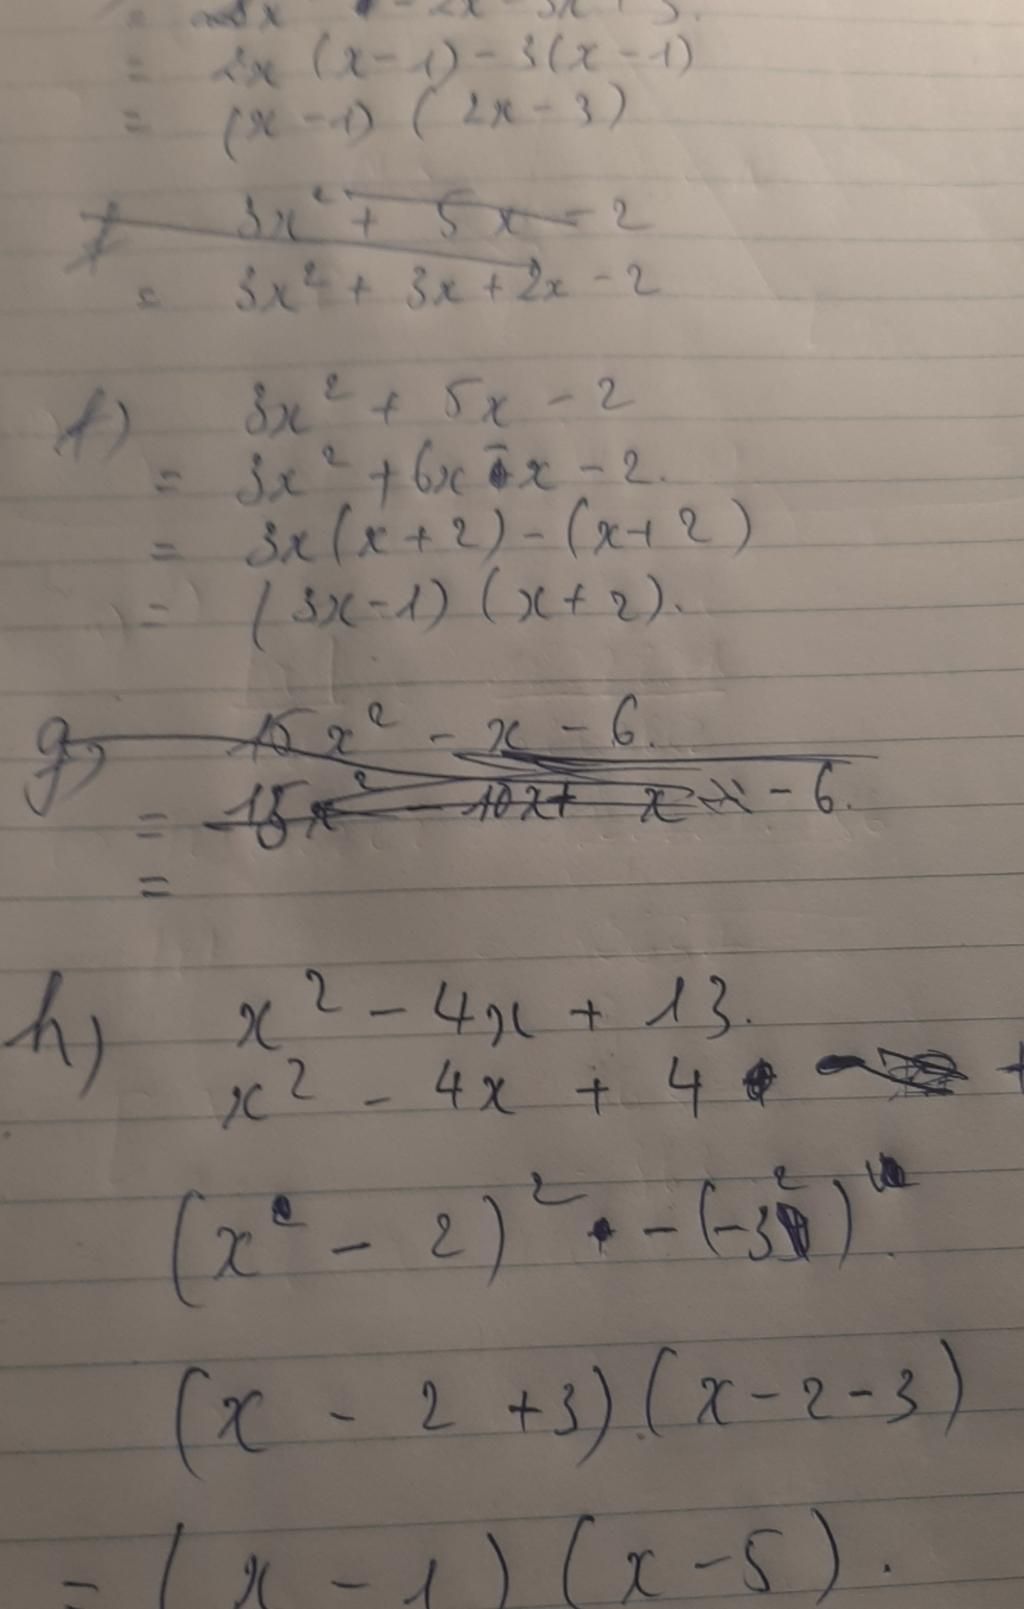 - 2x - 3x + 3.
= 2x (x-1) - 3(x-1)
= (x-1) (2x-3)
f 3x² + 5x - 2
= 3x² + 3x + 2x - 2
f) 3x² + 5x - 2
= 3x² + 6x - x - 2.
= 3x(x+2) - (x+2)
= (3x-1) (x+2).
g) 15x² - x - 6.
= 15x² - 10x + x - 6.
=
h) x² - 4x + 13.
x² - 4x + 4 +
(x - 2)² - (-3²)
(x - 2 + 3).(x - 2 - 3)
= (x - 1) (x - 5).